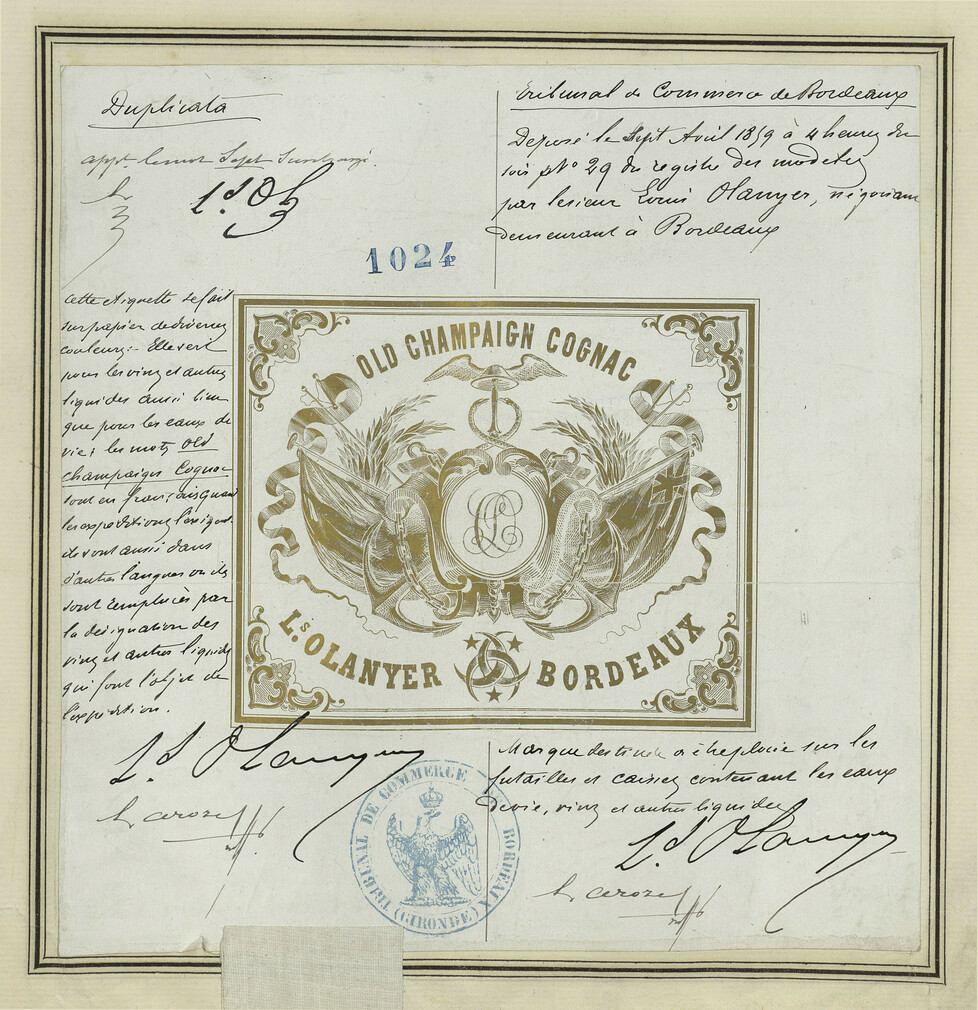 Duplicata
Tribunal de Commerce de Bordeaux
Deposé le Sept Avril 1859 à 4 heures du
soir N° 29 du registre des modeles
par le sieur Louis Olanyer, négociant
demeurant à Bordeaux
app. le mot Sept
Ls O
1024
Cette étiquette se fait
sur papier de diverses
couleurs: Elle sert
pour les vins et autres
liquides aussi bien
que pour les eaux de
vie; les mots Old
champaign Cognac
sont en français quand
les expeditions l'exigent
ils sont aussi dans
d'autres langues ou ils
sont remplacés par
la designation des
vins et autres liquides
qui font l'objet de
l'expedition.
OLD CHAMPAIGN COGNAC
Ls OLANYER BORDEAUX
Ls Olanyer
Marque destinée a être placée sur les
futailles et caisses contenant les eaux
de vie, vins et autres liquides
Ls Olanyer
TRIBUNAL DE COMMERCE
BORDEAUX
(GIRONDE)